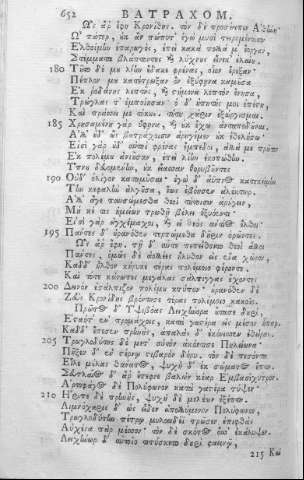 652 ΒΑΤΡΑΧΟΜ.
Ὣς ἄρ' ἔφη Κρονίδης. τὸν δὲ προσέειπεν Ἀθήνη·
Ὦ πάτερ, οὐκ ἄν πώποτ' ἐγὼ μυσὶ τειρομένοισιν
Ἐλθοίμην ἐπαρωγὸς, ἐπεὶ κακὰ πολλά μ' ἔοργαν,
Στέμματα βλάπτοντες καὶ λύχνους εἵνεκ' ἐλαίου.
180 Τοῦτο δέ μοι λίην ἔδακε φρένας, οἷον ἔρεξαν·
Πέπλον μου κατέτρωξαν ὃν ἐξύφηνα καμοῦσα
Ἐκ ῥοδάνης λεπτῆς, καὶ στήμονα λεπτὸν ἔνησα,
Τρώγλας τ' ἐμποίησαν· ὁ δ' ἠπητής μοι ἐπέστη,
Καὶ πράσσει με τόκον. τούτου χάριν ἐξώργισμαι.
185 Χρησαμένη γὰρ ὕφηνα, καὶ οὐκ ἔχω ἀνταποδοῦναι.
Ἀλλ' οὐδ' ὣς βατράχοισιν ἀρηγέμεν οὐκ ἐθελήσω·
Εἰσὶ γὰρ οὐδ' αὐτοὶ φρένας ἔμπεδοι, ἀλλά με πρώην
Ἐκ πολέμου ἀνιοῦσαν, ἐπεὶ λίην ἐκοπώθην,
Ὕπνου δευομένην, οὐκ εἴασαν θορυβοῦντες
190 Οὐδ' ὀλίγον καταμῦσαι· ἐγὼ δ' ἄϋπνος κατεκείμην
Τὴν κεφαλὴν ἀλγοῦσα, ἕως ἐβόησεν ἀλέκτωρ.
Ἀλλ' ἄγε παυσώμεσθα θεοὶ τούτοισιν ἀρήγειν,
Μή κέ τις ἡμείων τρωθῇ βέλει ὀξυόεντι·
Εἰσὶ γὰρ ἀγχέμαχοι, καὶ εἰ θεὸς ἀντίον ἔλθοι·
195 Πάντες δ' οὐρανόθεν τερπώμεθα δῆριν ὁρῶντες.
Ὣς ἄρ' ἔφη. τῇ δ' αὖτ' ἐπεπείθοντο θεοὶ ἄλλοι
Πάντες, ὁμῶς δ' ἀολλέες ἤλυθον ὡς ἕνα χῶρον,
Κὰδδ' ἦλθον κήρυκε τέρας πολέμοιο φέροντε.
Καὶ τότε κώνωπες μεγάλας σάλπιγγας ἔχοντες
200 Δεινὸν ἐσάλπιξαν πολέμου κτύπον· οὐρανόθεν δὲ
Ζεὺς Κρονίδης βρόντησε τέρας πολέμοιο κακοῖο.
Πρῶτος δ' Ὑψιβόας Λειχήνορα οὔτασε δουρὶ,
Ἑσταότ' ἐν προμάχοις, κατὰ γαστέρα ἐς μέσον ἧπαρ.
Κὰδδ' ἔπεσεν πρηνὴς, ἁπαλὰς δ' ἐκόνισσεν ἐθείρας.
205 Τρωγλοδύτης δὲ μετ' αὐτὸν ἀκόντισε Πηλείωνα·
Πῆξεν δ' ἐν στέρνῳ στιβαρὸν δόρυ. τὸν δὲ πεσόντα
Εἷλε μέλας θάνατος, ψυχὴ δ' ἐκ σώματος ἔπτη.
Σευτλαῖος δ' ἄρ' ἔπεφνε βαλὼν κέαρ Ἐμβασίχυτρον
Ἀρτοφάγος δὲ Πολύφωνον κατὰ γαστέρα τύψεν·
210 Ἤριπε δὲ πρηνὴς, ψυχὴ δὲ μελέων ἐξέπτη.
Λιμνόχαρις δ' ὡς εἶδεν ἀπολλύμενον Πολύφωνον,
Τρωγλοδύτην πέτρῳ μυλοειδέϊ τρῶσεν ἐπιφθὰς
Αὐχένα πὰρ μέσσον· τὸν δὲ σκότος ὄσσε κάλυψεν.
Λειχήνωρ δ' αὐτοῖο τιτύσκετο δουρὶ φαεινῷ,
215 Καὶ